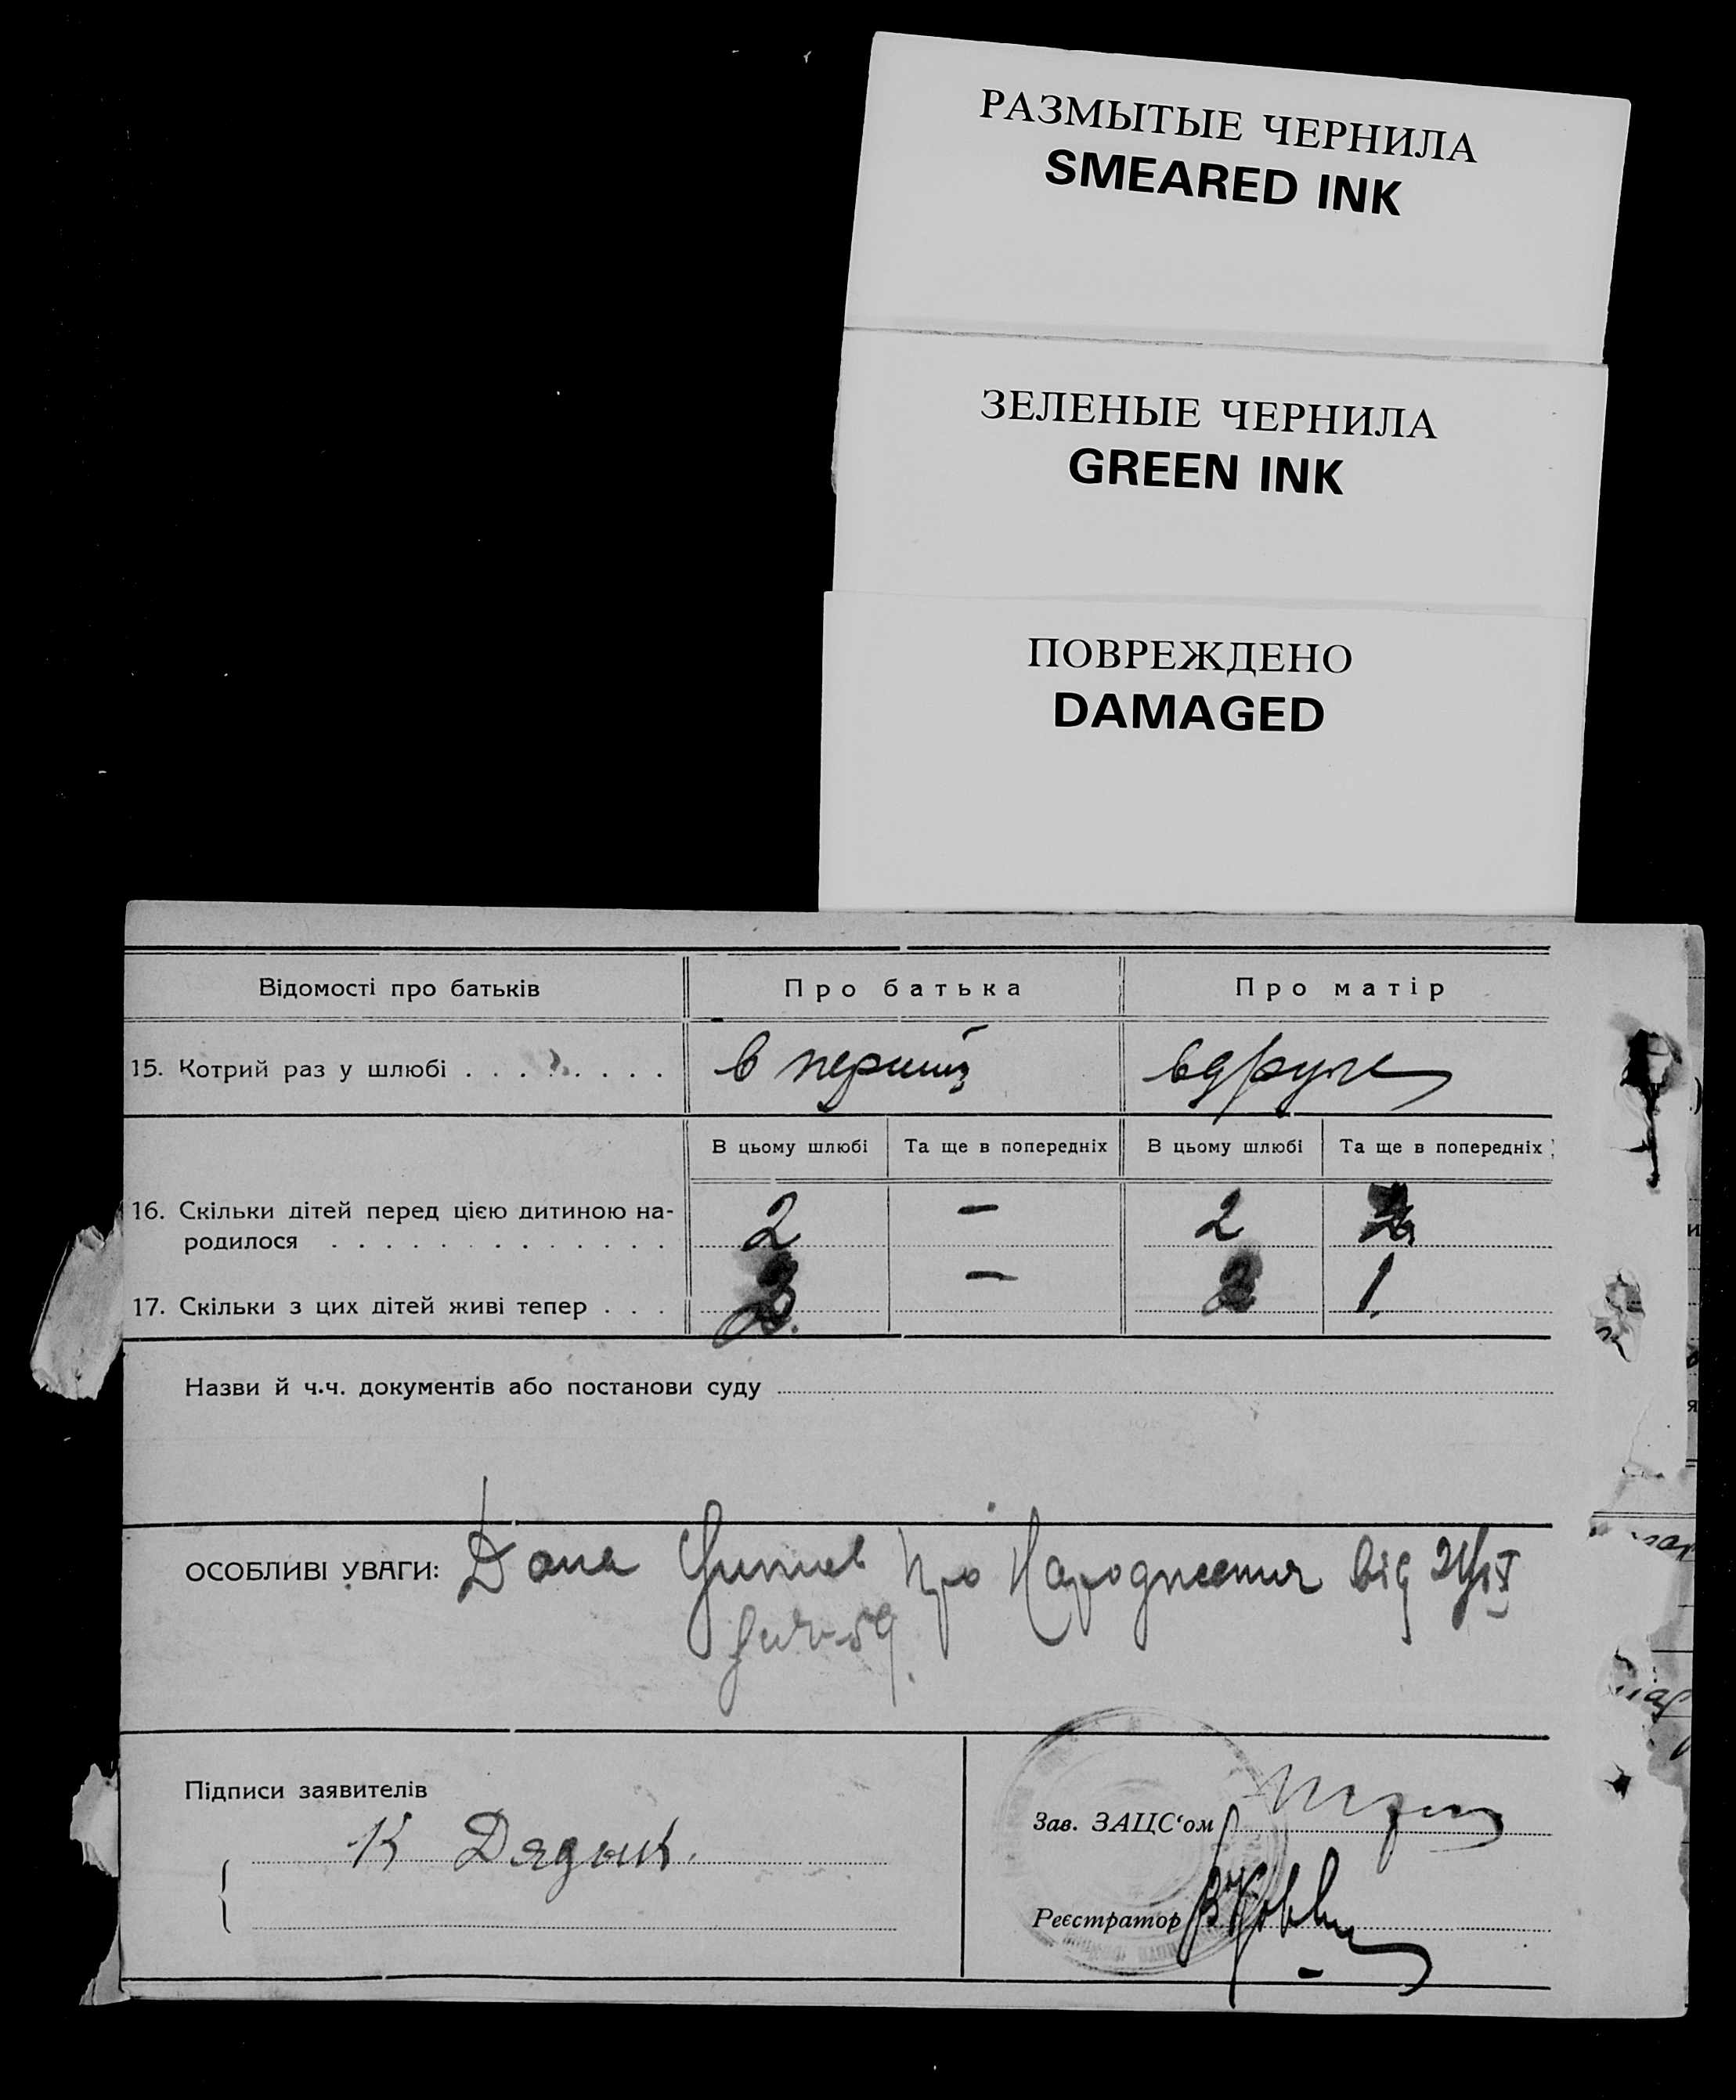 РАЗМЫТЫЕ ЧЕРНИЛА
SMEARED INK
ЗЕЛЕНЫЕ ЧЕРНИЛА
GREEN INK
ПОВРЕЖДЕНО
DAMAGED
Відомості про батьків Про батька Про матір
15. Котрий раз у шлюбі . . . . . . . . в перший вдруге
В цьому шлюбі Та ще в попередніх В цьому шлюбі Та ще в попередніх
16. Скільки дітей перед цією дитиною на- 2 — 2
родилося . . . . . . . . . . . . .
17. Скільки з цих дітей живі тепер . . . — 1.
Назви й ч.ч. документів або постанови суду
ОСОБЛИВІ УВАГИ: про народження від
Підписи заявителів
Зав. ЗАЦС‘ом
К Дядик.
Реєстратор